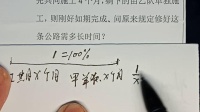 先共同施工4个月,剩下的由乙队单独施
工,则刚好如期完成。问原来规定修好这
条公路需多长时间?
1=100%
甲单独 x个月 1/x